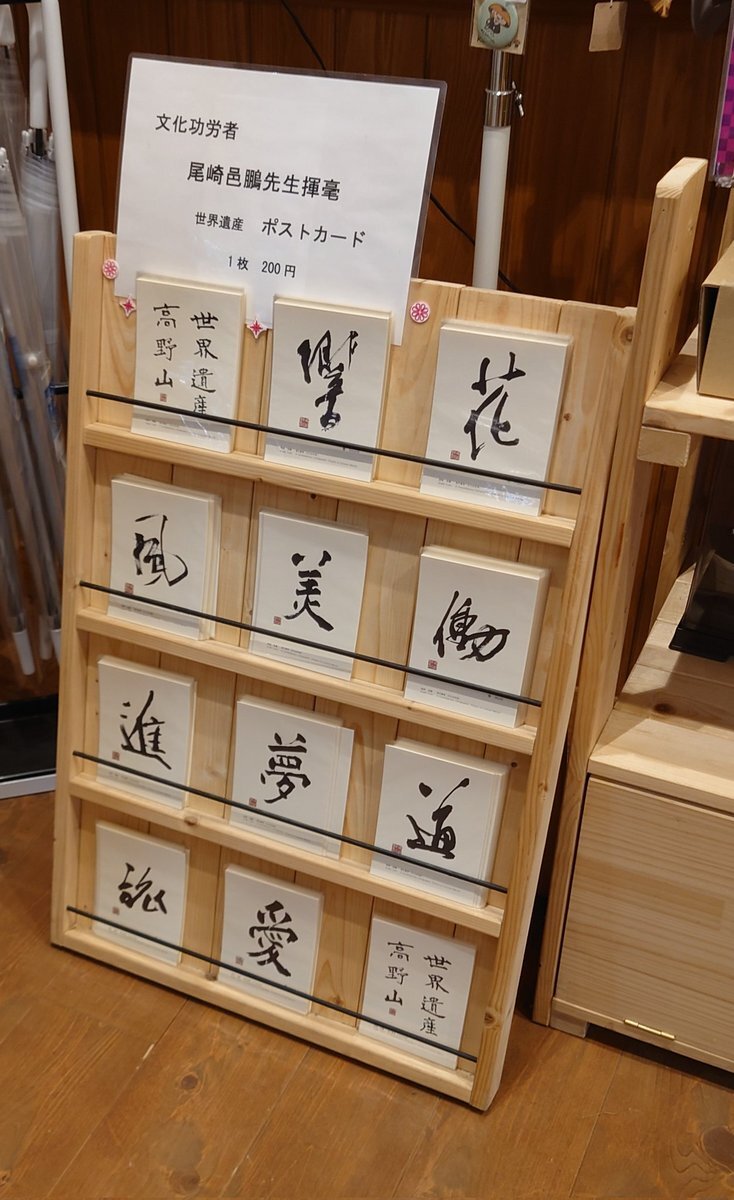 文化功労者
尾崎邑鵬先生揮毫
世界遺産 ポストカード
1枚 200円
世界遺産
高野山
響
花
風
美
働
進
夢
道
旅
愛
世界遺産
高野山